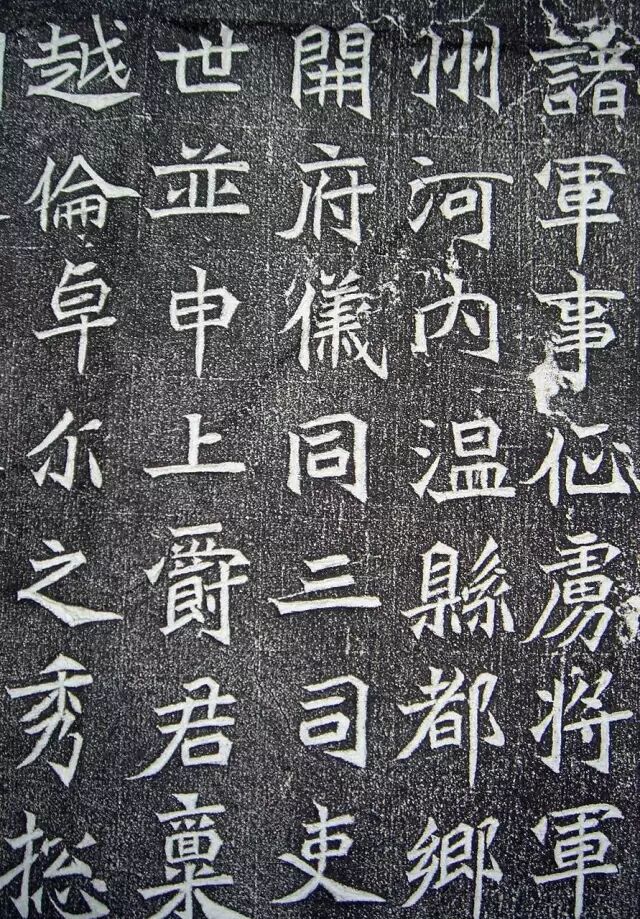 諸軍事征虜将軍
州河内温縣都鄉
開府儀同三司吏
世並申上爵君稟
越倫卓尔之秀捴